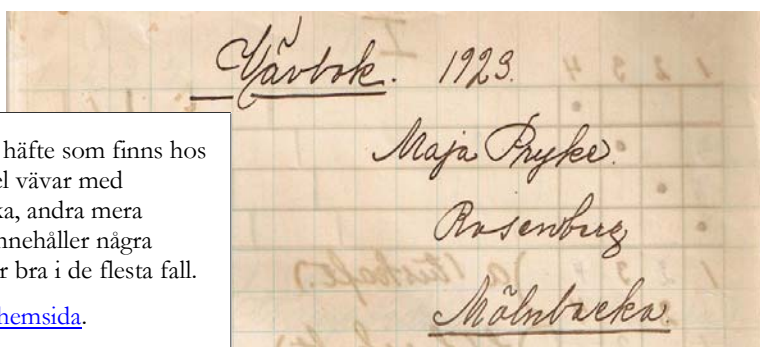 Vävbok. 1923.
Maja Pryke.
Rosenberg
Mölnbacka.
häfte som finns hos
el vävar med
ka, andra mera
nnehåller några
r bra i de flesta fall.
hemsida.
1 2 3 4